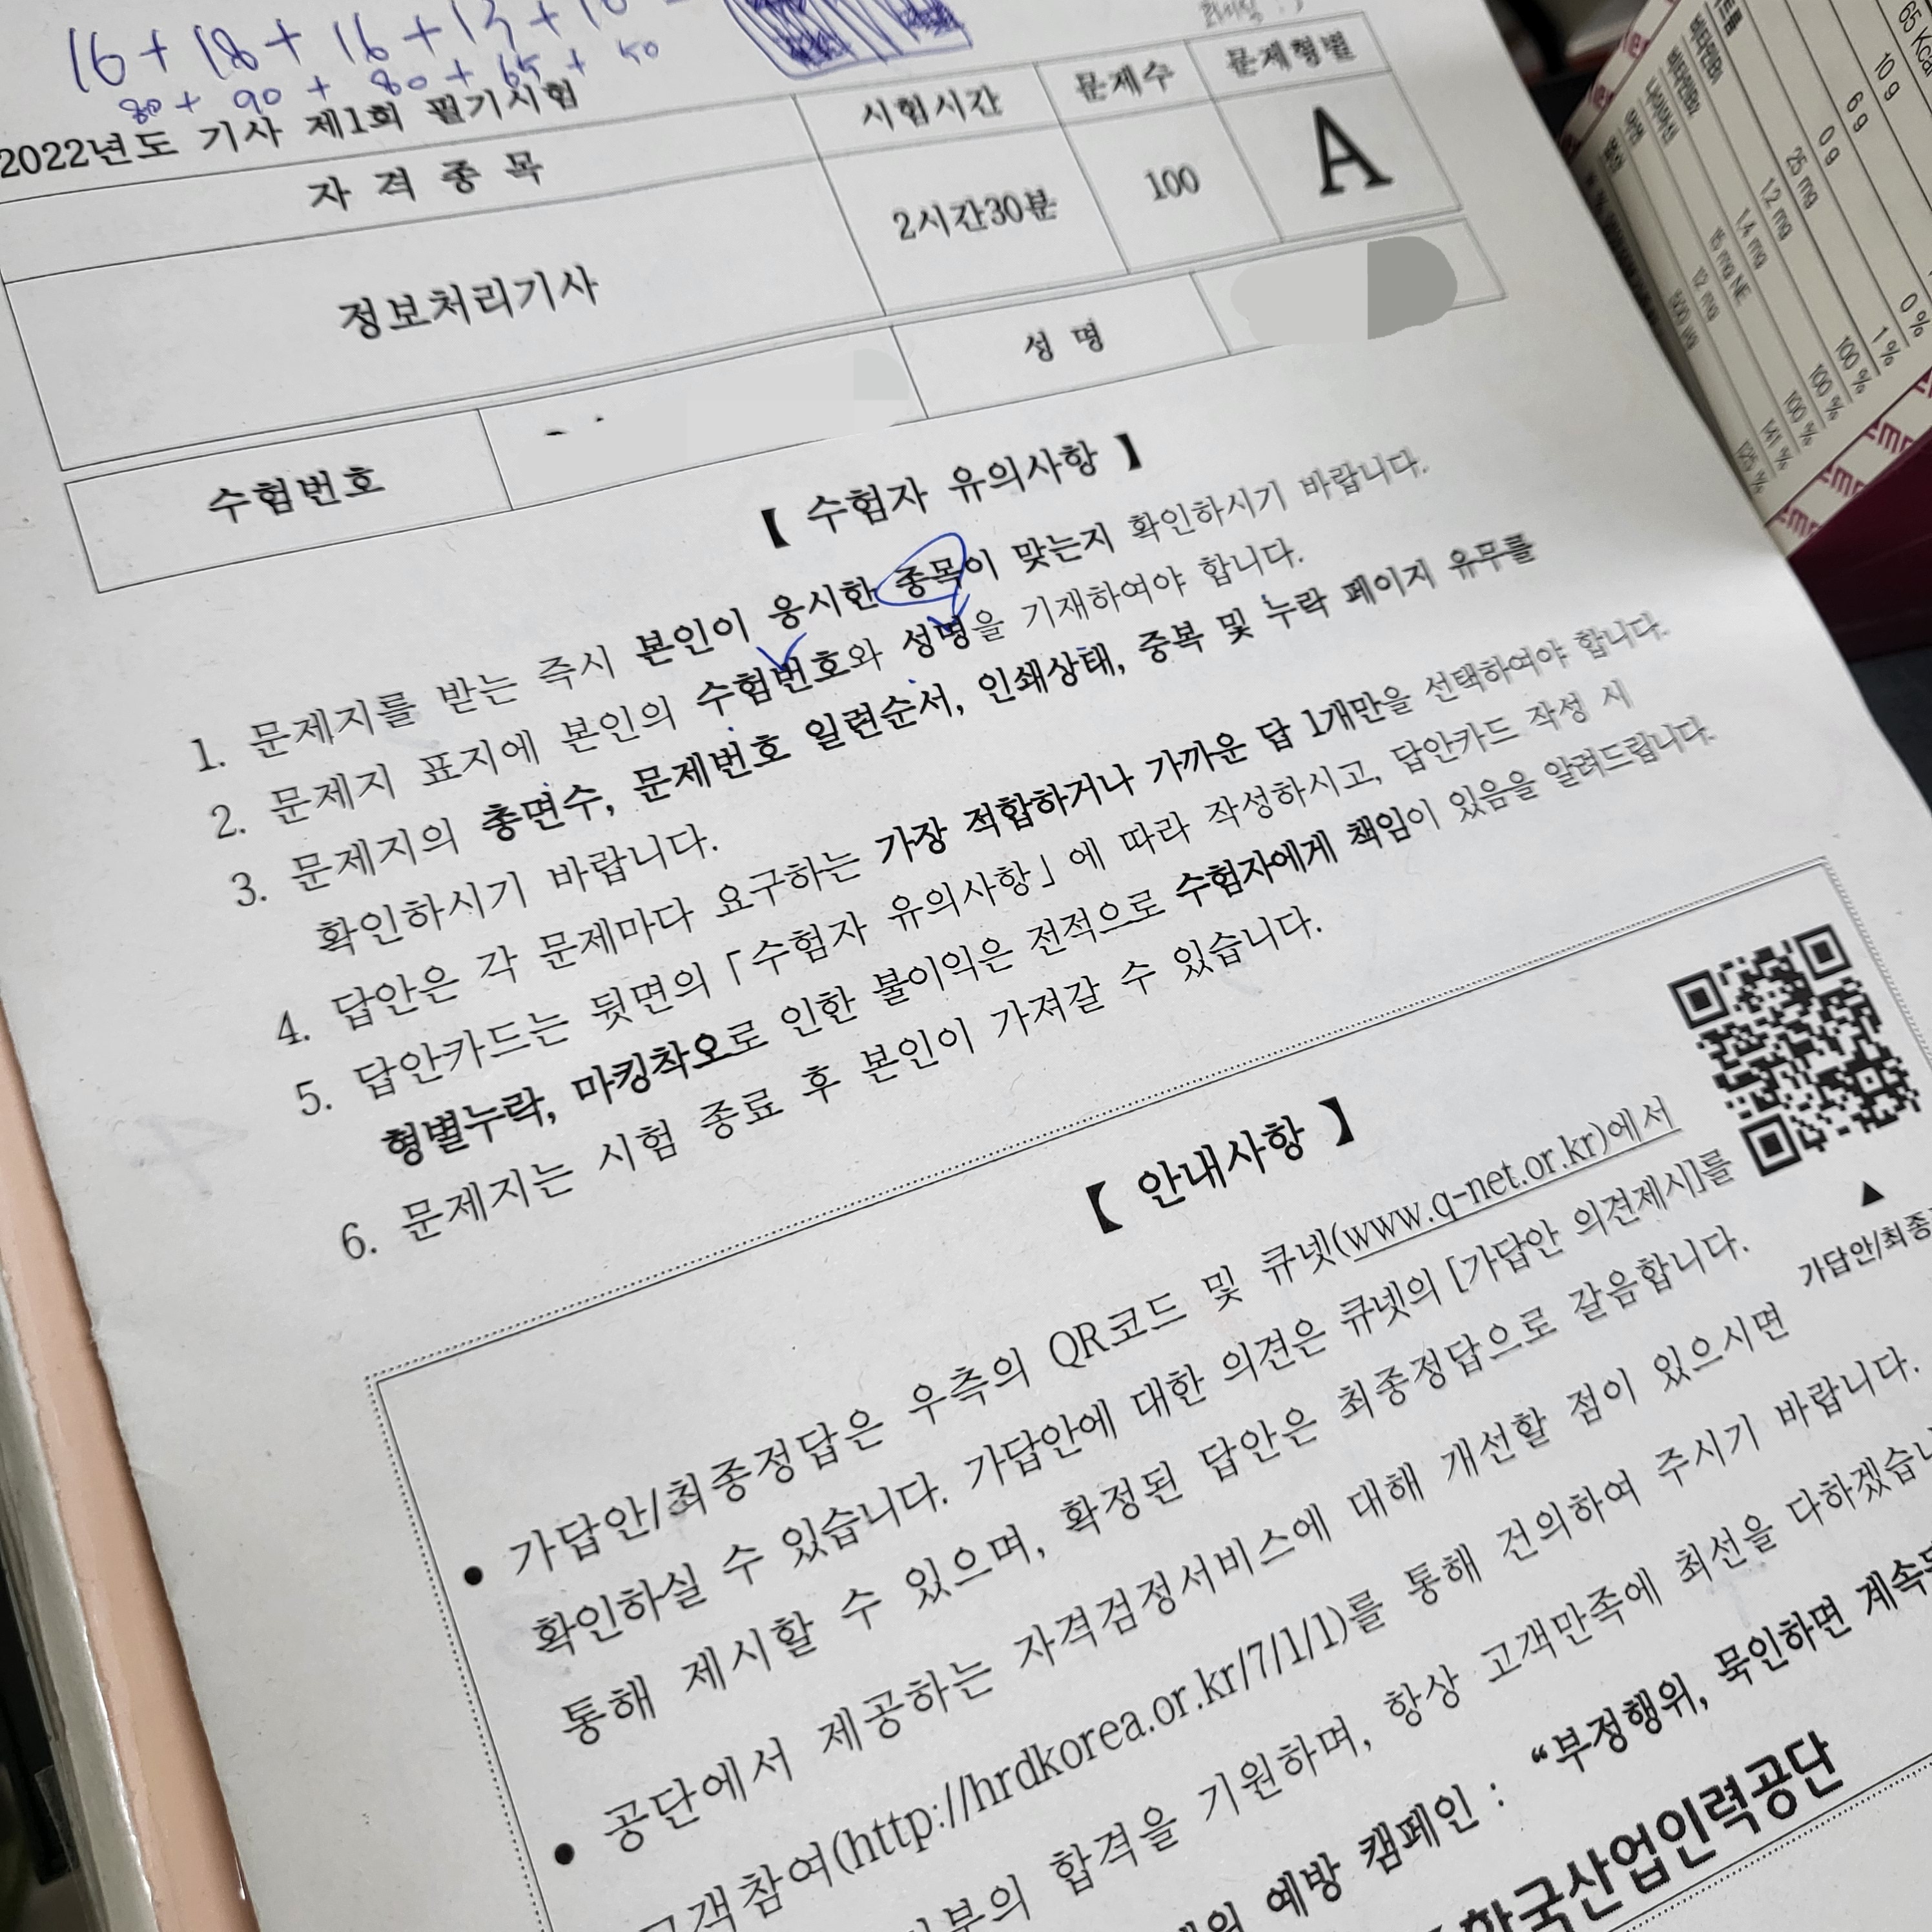 16 + 18 + 16 + 13 + 10
80 + 90 + 80 + 65 + 50
2022년도 기사 제1회 필기시험
자 격 종 목
시험시간
문제수
문제형별
정보처리기사
2시간30분
100
A
수험번호
성 명
【 수험자 유의사항 】
1. 문제지를 받는 즉시 본인이 응시한 종목이 맞는지 확인하시기 바랍니다.
2. 문제지 표지에 본인의 수험번호와 성명을 기재하여야 합니다.
3. 문제지의 총면수, 문제번호 일련순서, 인쇄상태, 중복 및 누락 페이지 유무를
확인하시기 바랍니다.
4. 답안은 각 문제마다 요구하는 가장 적합하거나 가까운 답 1개만을 선택하여야 합니다.
5. 답안카드는 뒷면의 「수험자 유의사항」에 따라 작성하시고, 답안카드 작성 시
형별누락, 마킹착오로 인한 불이익은 전적으로 수험자에게 책임이 있음을 알려드립니다.
6. 문제지는 시험 종료 후 본인이 가져갈 수 있습니다.
【 안내사항 】
• 가답안/최종정답은 우측의 QR코드 및 큐넷(www.q-net.or.kr)에서
확인하실 수 있습니다. 가답안에 대한 의견은 큐넷의 [가답안 의견제시]를
통해 제시할 수 있으며, 확정된 답안은 최종정답으로 갈음합니다.
• 공단에서 제공하는 자격검정서비스에 대해 개선할 점이 있으시면
고객참여(http://hrdkorea.or.kr/7/1/1)를 통해 건의하여 주시기 바랍니다.
합격을 기원하며, 항상 고객만족에 최선을 다하겠습
예방 캠페인 : “부정행위, 묵인하면 계속
한국산업인력공단
▲
가답안/최종
비타민B1
비타민B2
나이아신
엽산
65 Kcal
10 g
6 g
0 g
25 mg
1.2 mg
1.4 mg
15 mg NE
12 mg
500 μg
0 %
1 %
100 %
100 %
100 %
141 %
125 %